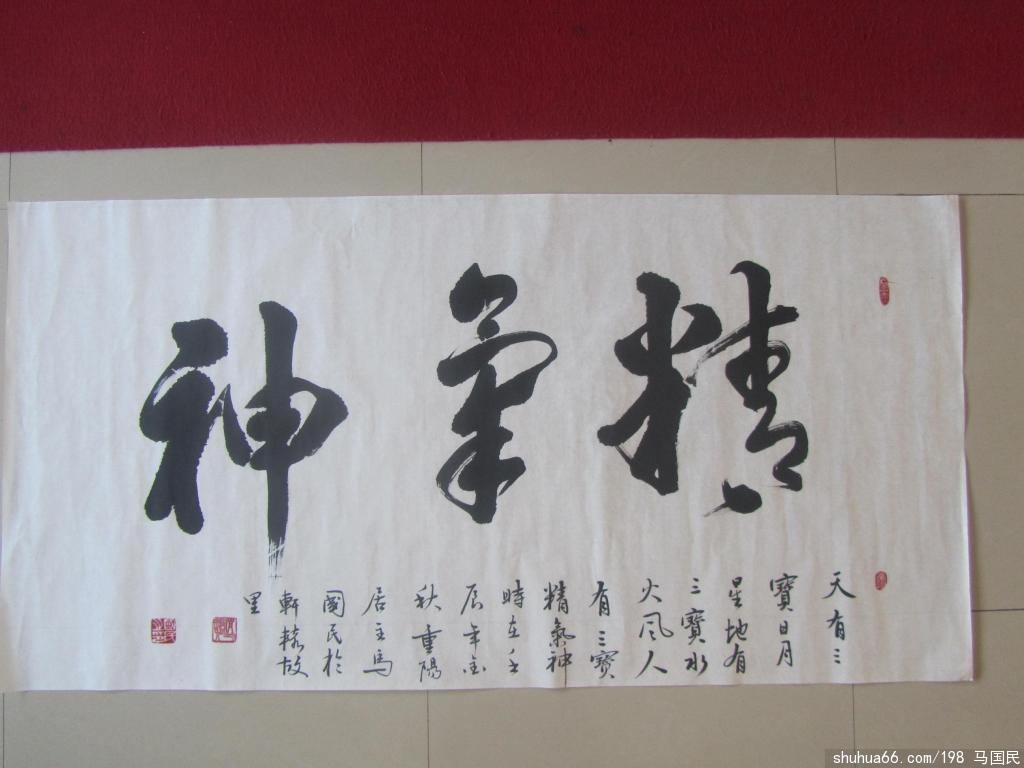 精氣神
天有三
寶日月
星地有
三寶水
火风人
有三寶
精氣神
時在壬
辰年金
秋重陽
居主馬
國民於
軒轅故
里
shuhua66.com/198 马国民